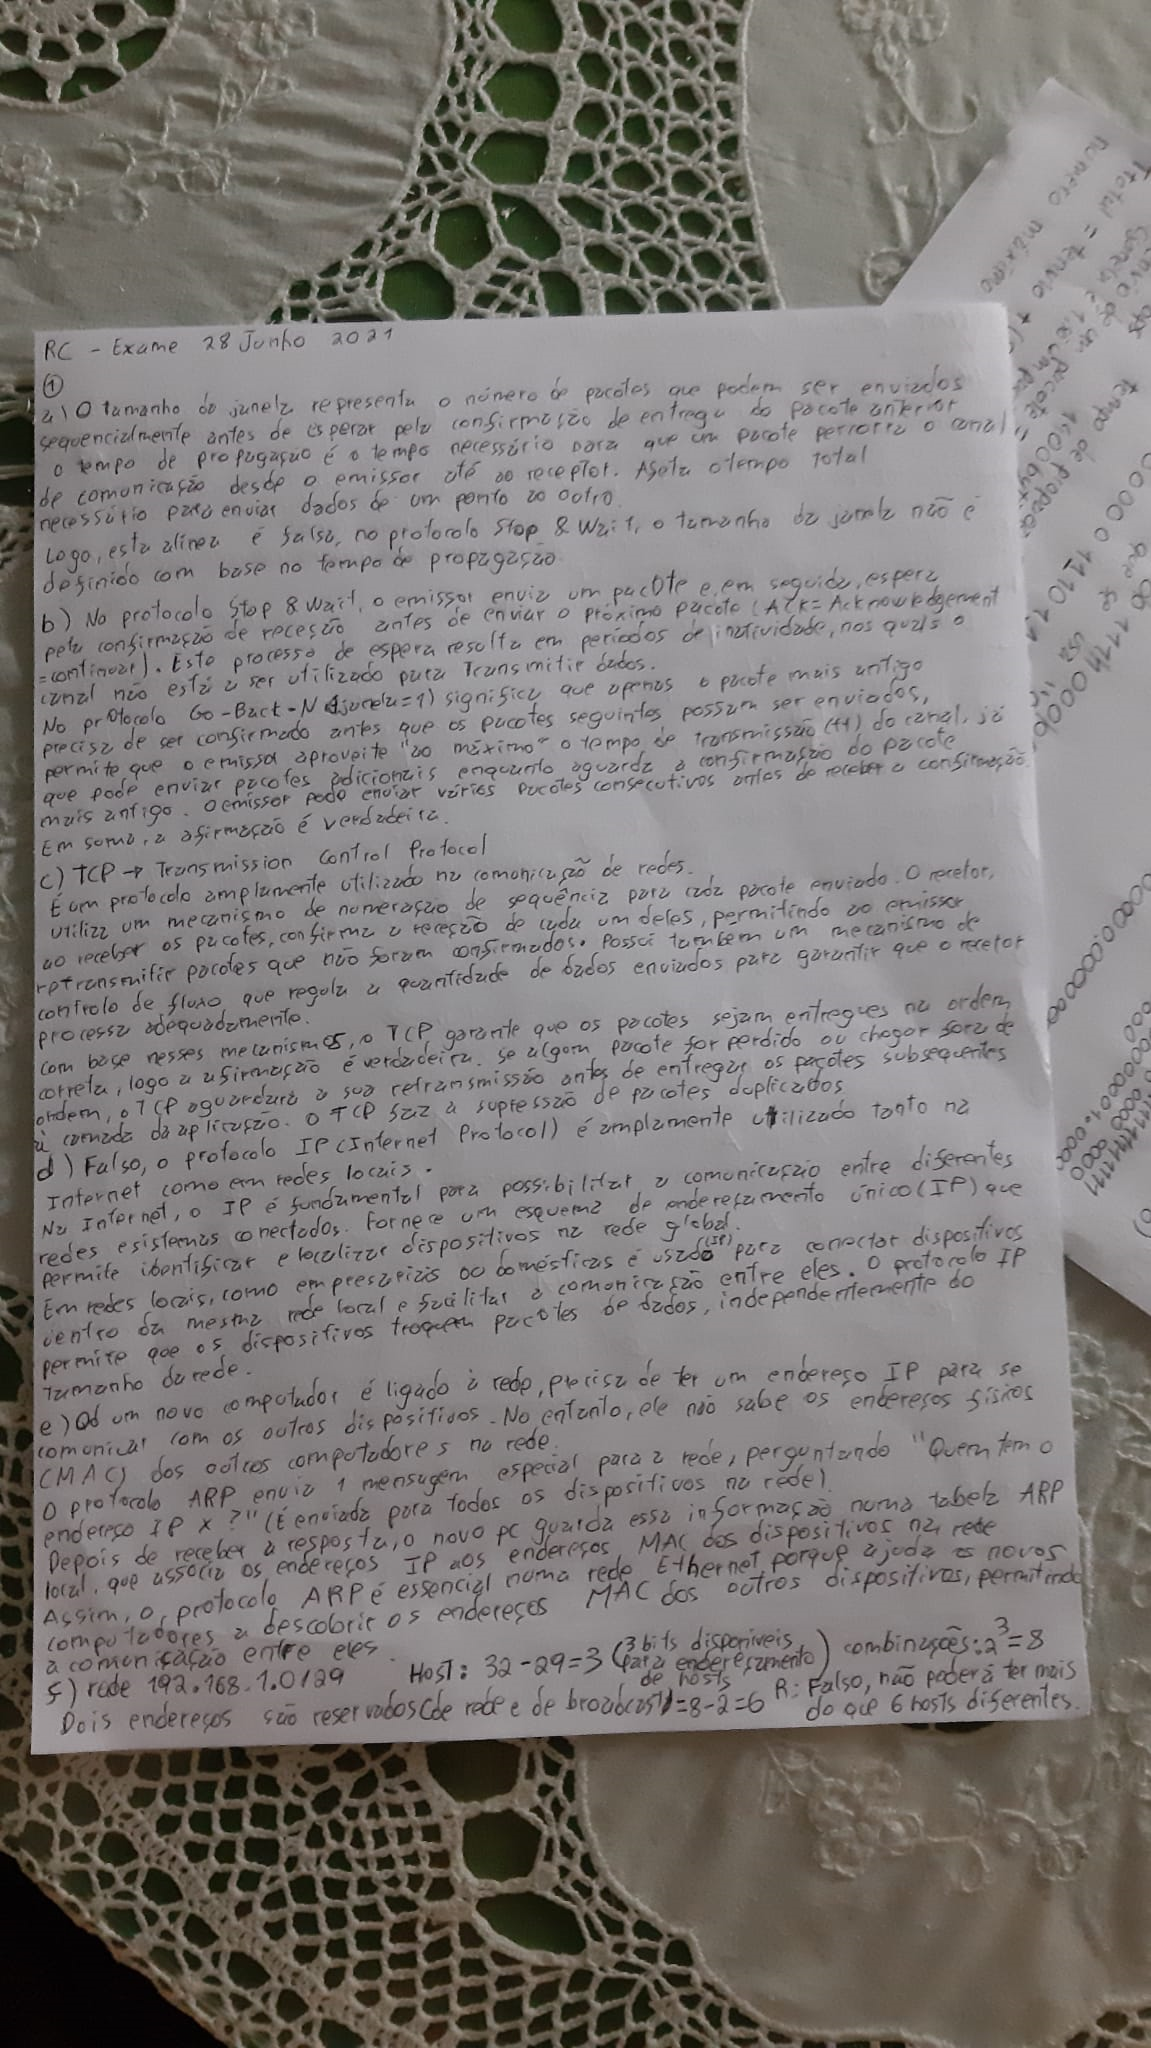 RC - Exame 28 Junho 2021
①
a) O tamanho da janela representa o número de pacotes que podem ser enviados
sequencialmente antes de esperar pela confirmação de entrega do pacote anterior
o tempo de propagação é o tempo necessário para que um pacote percorra o canal
de comunicação desde o emissor até ao receptor. Afeta o tempo total
necessário para enviar dados de um ponto ao outro.
Logo, esta alinea é falsa, no protocolo Stop & Wait, o tamanho da janela não é
definido com base no tempo de propagação.
b) No protocolo Stop & Wait, o emissor envia um pacote e, em seguida, espera
pela confirmação de receção antes de enviar o próximo pacote (ACK = Acknowledgement
=continuar). Este processo de espera resulta em períodos de inatividade, nos quais o
canal não está a ser utilizado para transmitir dados.
No protocolo Go-Back-N (janela=1) significa que apenas o pacote mais antigo
precisa de ser confirmado antes que os pacotes seguintes possam ser enviados,
permite que o emissor aproveite "ao máximo" o tempo de transmissão (tt) do canal, já
que pode enviar pacotes adicionais enquanto aguarda a confirmação do pacote
mais antigo. O emissor pode enviar vários pacotes consecutivos antes de receber a confirmação.
Em soma, a afirmação é verdadeira.
c) TCP → Transmission Control Protocol
É um protocolo amplamente utilizado na comunicação de redes.
Utiliza um mecanismo de numeração de sequência para cada pacote enviado. O recetor,
ao receber os pacotes, confirma a receção de cada um deles, permitindo ao emissor
retransmitir pacotes que não foram confirmados. Possui também um mecanismo de
controlo de fluxo que regula a quantidade de dados enviados para garantir que o recetor
processa adequadamente.
Com base nesses mecanismos, o TCP garante que os pacotes sejam entregues na ordem
correta, logo a afirmação é verdadeira. Se algum pacote for perdido ou chegar fora de
ordem, o TCP aguardará a sua retransmissão antes de entregar os pacotes subsequentes
à camada da aplicação. O TCP faz a supressão de pacotes duplicados
d) Falso, o protocolo IP (Internet Protocol) é amplamente utilizado tanto na
Internet como em redes locais.
Na Internet, o IP é fundamental para possibilitar a comunicação entre diferentes
redes e sistemas conectados. Fornece um esquema de endereçamento único (IP) que
permite identificar e localizar dispositivos na rede global.
Em redes locais, como empresariais ou domésticas é usado (IP) para conectar dispositivos
dentro da mesma rede local e facilitar a comunicação entre eles. O protocolo IP
permite que os dispositivos troquem pacotes de dados, independentemente do
tamanho da rede.
e) Qd um novo computador é ligado à rede, precisa de ter um endereço IP para se
comunicar com os outros dispositivos. No entanto, ele não sabe os endereços físicos
(MAC) dos outros computadores na rede.
O protocolo ARP envia 1 mensagem especial para a rede, perguntando "Quem tem o
endereço IP X?" (É enviada para todos os dispositivos na rede).
Depois de receber a resposta, o novo pc guarda essa informação numa tabela ARP
local, que associa os endereços IP aos endereços MAC dos dispositivos na rede
Assim, o protocolo ARP é essencial numa rede Ethernet porque ajuda os novos
computadores a descobrir os endereços MAC dos outros dispositivos, permitindo
a comunicação entre eles.
f) rede 192.168.1.0/29 Host: 32-29=3 (3 bits disponíveis para endereçamento de hosts) combinações: 2³=8
Dois endereços são reservados (de rede e de broadcast) = 8-2=6 R: Falso, não poderá ter mais
do que 6 hosts diferentes.